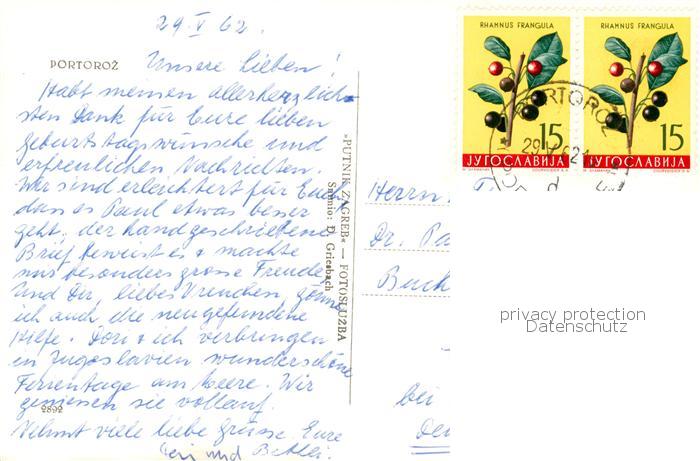 29. V. 62.
PORTOROŽ
Unsere lieben!
Habt meinen allerherzlich-
sten Dank für Eure lieben
Geburtstagswünsche und
erfreulichen Nachrichten.
Wir sind erleichtert für Euch
dass es Paul etwas besser
geht, der handgeschriebene
Brief beweist es & machte
uns besonders grosse Freude
Und Dir, liebes Vrenchen, gönne
ich auch die neugefundene
Hilfe. Don & ich verbringen
in Jugoslavien wunderschöne
Ferientage am Meere. Wir
geniessen sie vollauf.
2892
Nehmt viele liebe Grüsse Eure
und
»PUTNIK ZAGREB« — FOTOSLUŽBA
Snimio: Đ. Griesbach
RHAMNUS FRANGULA
15
JУГОСЛАВИЈА
RHAMNUS FRANGULA
15
JУГОСЛАВИЈА
PORTOROŽ
Herrn
Dr. Pa
Buch
bei
privacy protection
Datenschutz